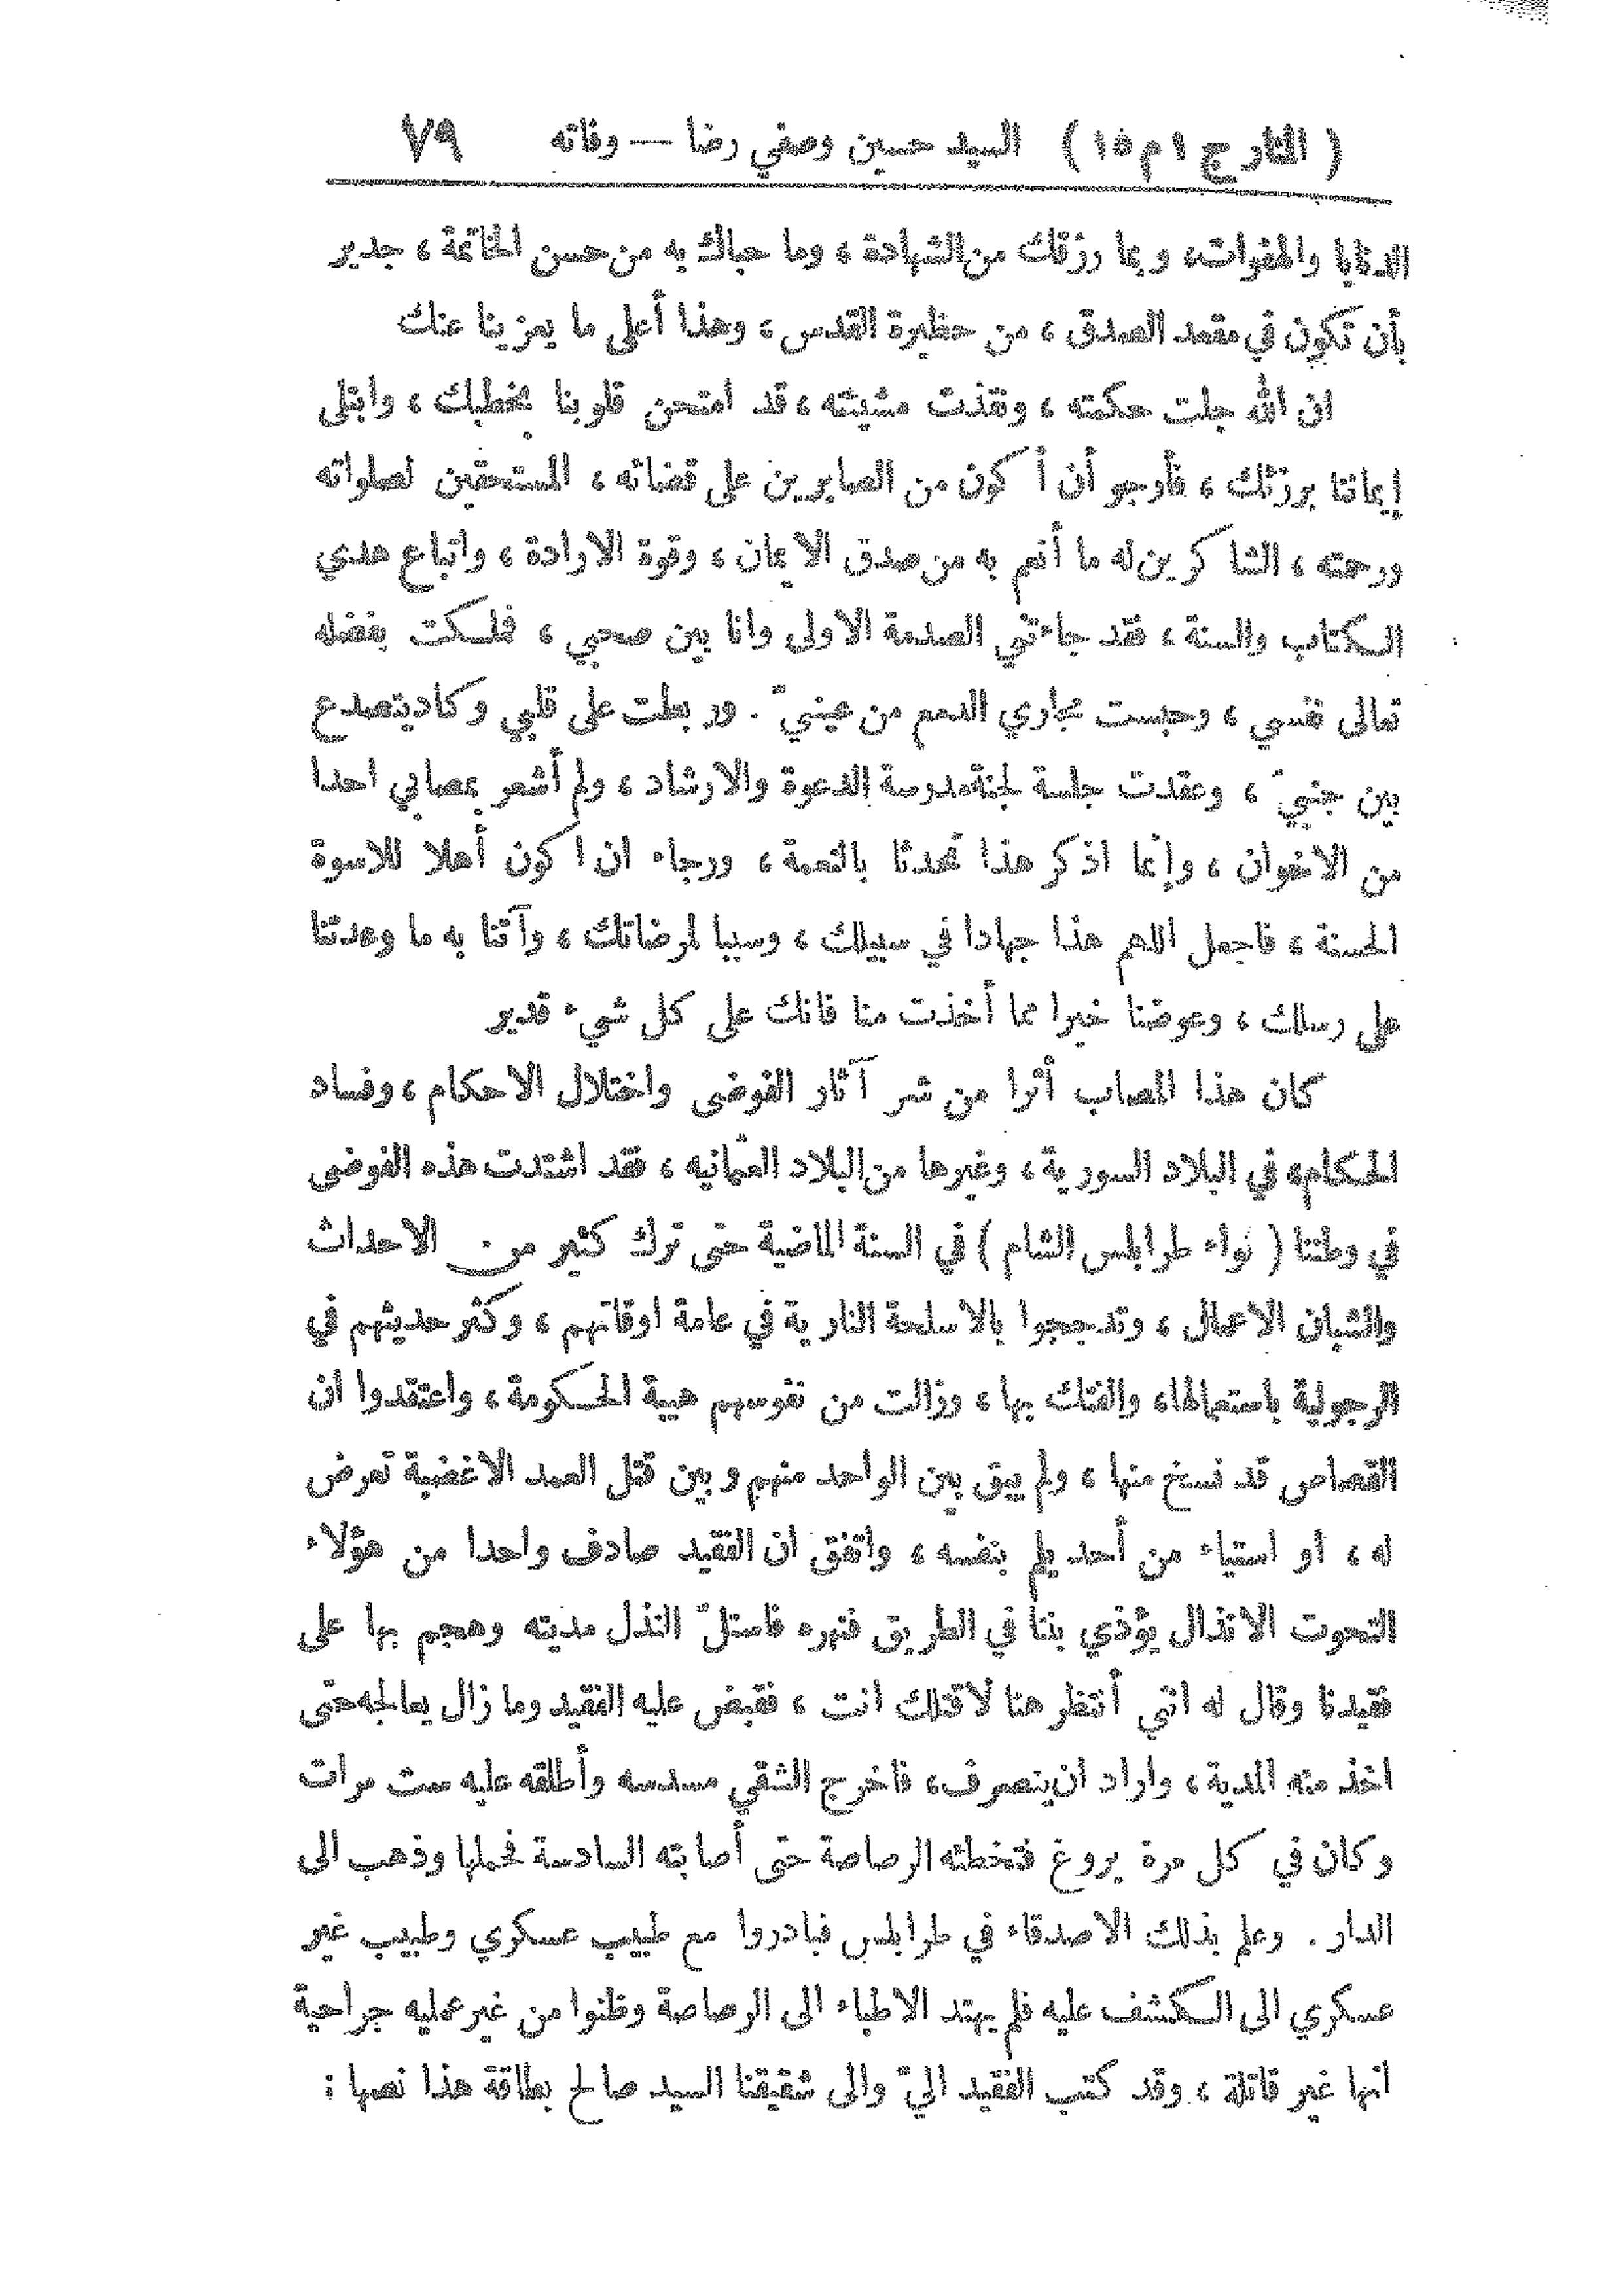 ( المنار ج ١ م ١٥ ) السيد حسين وصفي رضا — وفاته ٧٩
الدنايا والهفوات، وبما رزقك من الشهادة ، وما حباك به من حسن الخاتمة ، جدير
بأن تكون في مقعد الصدق ، من حظيرة القدس ، وهذا أعلى ما يعزينا عنك
ان الله جلت حكمته ، ونفذت مشيئته ، قد امتحن قلوبنا بخطبك ، وابتلى
إيماننا برزئك ، فأرجو أن أكون من الصابرين على قضائه ، المستحقين لصلواته
ورحمته ، الشاكرين له ما أنعم به من صدق الايمان ، وقوة الارادة ، واتباع هدي
الكتاب والسنة ، فقد جاءتني الصدمة الاولى وانا بين صحبي ، فملكت بفضله
تعالى نفسي ، وحبست مجاري الدمع من عينيّ . وربطت على قلبي وكاد يتصدع
بين جنبيّ ، وعقدت جلسة لجنة مدرسة الدعوة والارشاد ، ولم أشعر بمصابي احدا
من الاخوان ، وإنما اذكر هذا تحدثا بالنعمة ، ورجاء ان اكون أهلا للاسوة
الحسنة ، فاجعل اللهم هذا جهادا في سبيلك ، وسببا لمرضاتك ، وآتنا به ما وعدتنا
على رسلك ، وعوضنا خيرا مما أخذت منا فانك على كل شيء قدير
كان هذا المصاب أثرا من شر آثار الفوضى واختلال الاحكام ، وفساد
الحكام، في البلاد السورية ، وغيرها من البلاد العثمانيه ، فقد اشتدت هذه الفوضى
في وطننا ( لواء طرابلس الشام ) في السنة الماضية حتى ترك كثير من الاحداث
والشبان الاعمال ، وتدججوا بالاسلحة النارية في عامة اوقاتهم ، وكثر حديثهم في
الرجولية باستعمالها، والفتك بها ، وزالت من نفوسهم هيبة الحكومة ، واعتقدوا ان
القصاص قد نسخ منها ، ولم يبق بين الواحد منهم وبين قتل العمد الاغضبة تعرض
له ، او استياء من أحد يلم بنفسه ، واتفق ان الفقيد صادف واحدا من هؤلاء
التحوت الانذال يؤذي بنتا في الطريق فنهره فاستلّ النذل مديته وهجم بها على
فقيدنا وقال له انني أنتظر هنا لاقتلك انت ، فقبض عليه الفقيد وما زال يعالجه حتى
اخذ منه المدية ، واراد ان ينصرف، فاخرج الشقي مسدسه وأطلقه عليه ست مرات
وكان في كل مرة يروغ فتخطئه الرصاصة حتى أصابته السادسة فحملها وذهب الى
الدار . وعلم بذلك الاصدقاء في طرابلس فبادروا مع طبيب عسكري وطبيب غير
عسكري الى الكشف عليه فلم يهتد الاطباء الى الرصاصة وظنوا من غير عمليه جراحية
انها غير قاتلة ، وقد كتب الفقيد اليّ والى شقيقنا السيد صالح بطاقة هذا نصها :